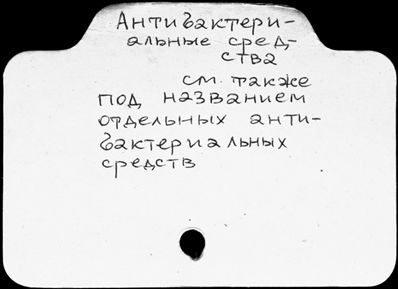 Антибактери-
альные сред-
ства
см. также
под названием
отдельных анти-
бактериальных
средств